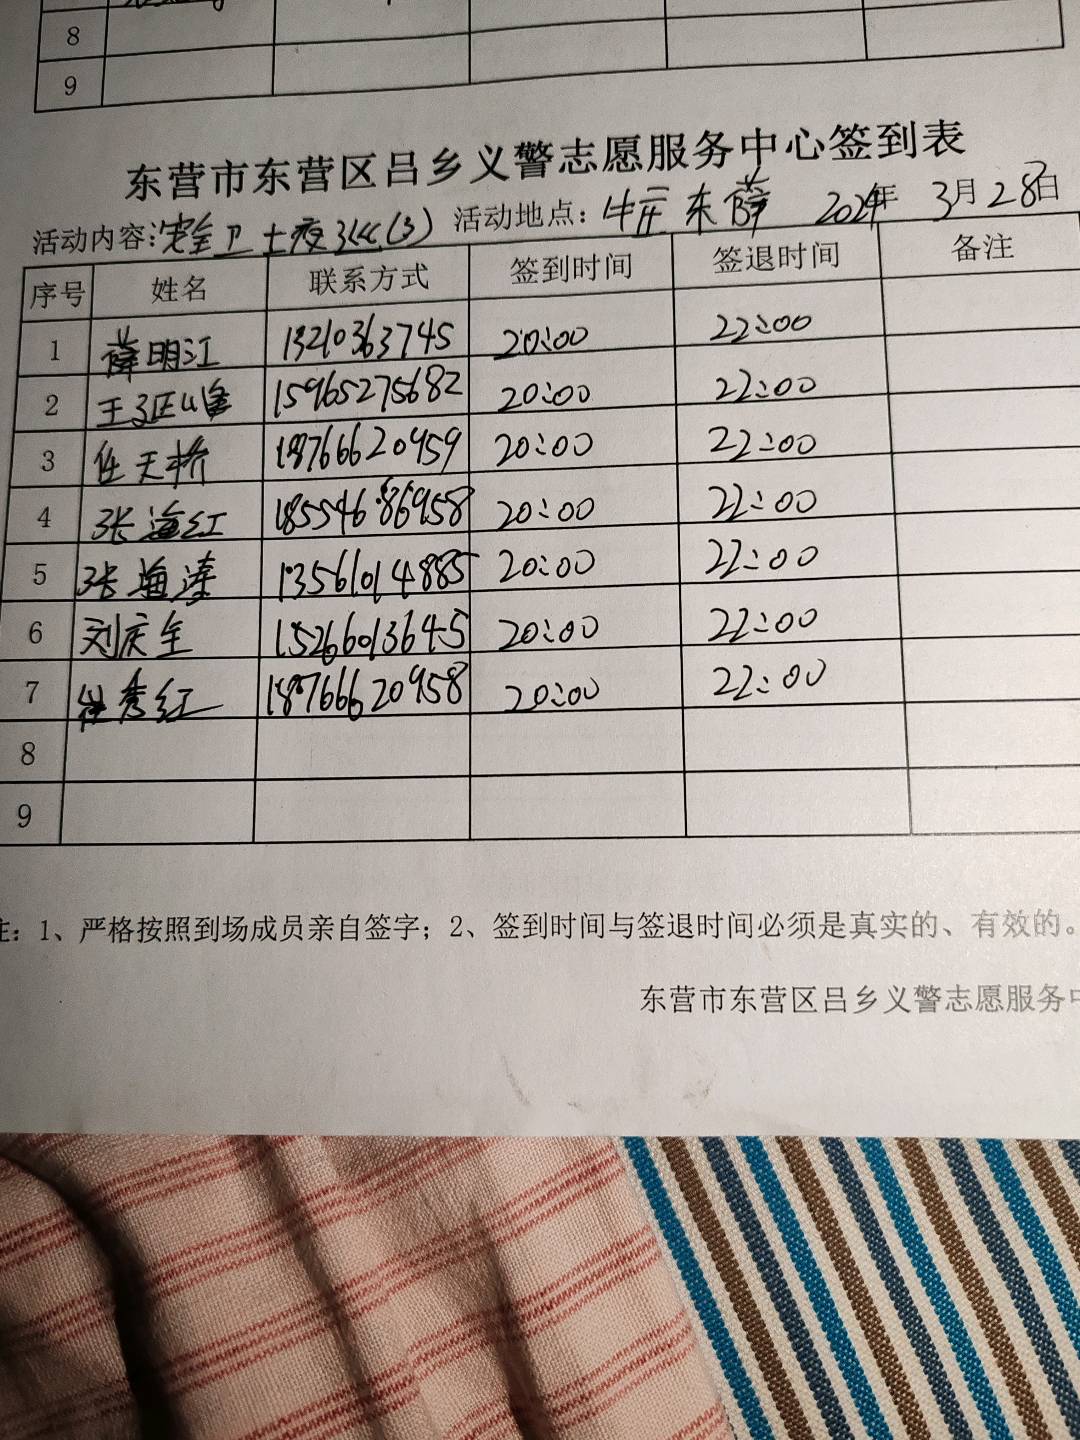 8
9
东营市东营区吕乡义警志愿服务中心签到表
活动内容：安全卫士夜 (3) 活动地点：牛庄东薛 2024年 3月28日
序号 姓名 联系方式 签到时间 签退时间 备注
1 薛明江 13210363745 20:00 22:00
2 王 15965275682 20:00 22:00
3 任天桥 18766620959 20:00 22:00
4 张海红 18554686958 20:00 22:00
5 张海涛 13561014885 20:00 22:00
6 刘庆全 15266013645 20:00 22:00
7 崔秀红 18766620958 20:00 22:00
8
9
注：1、严格按照到场成员亲自签字；2、签到时间与签退时间必须是真实的、有效的。
东营市东营区吕乡义警志愿服务中